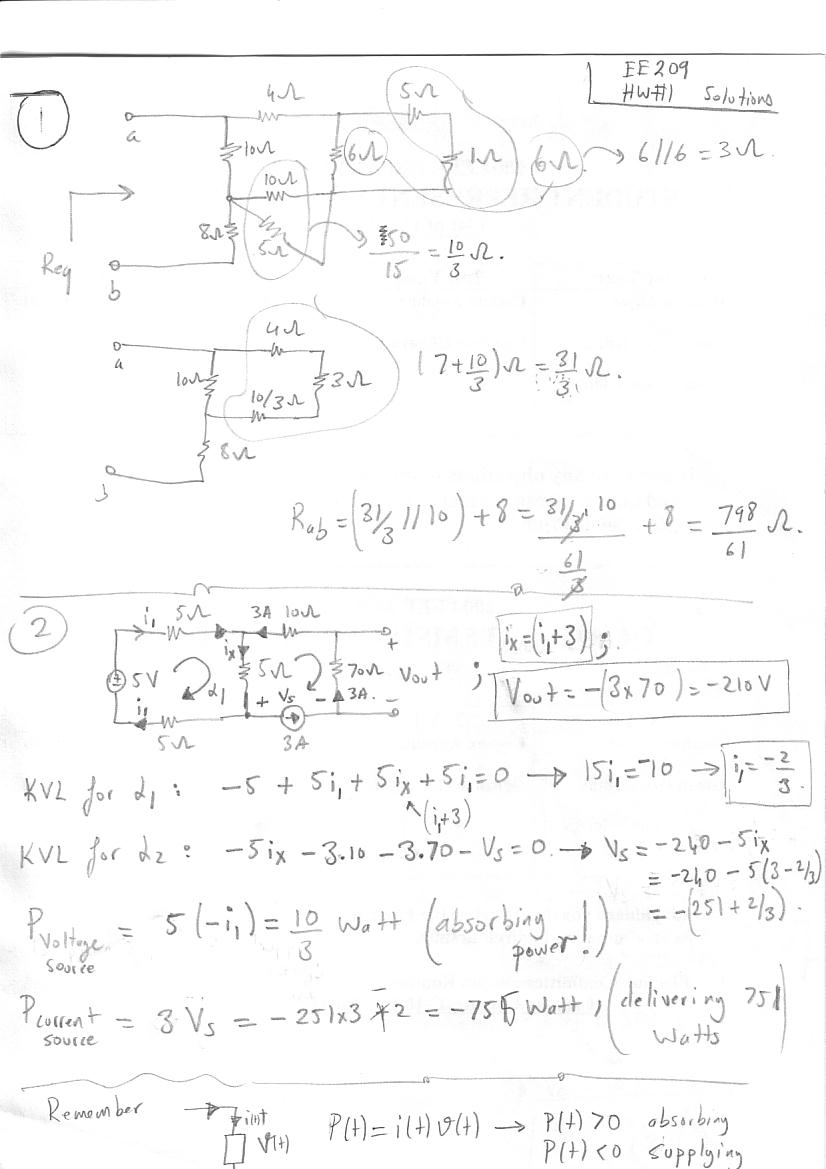 EE209
HW#1 Solutions
1
4Ω 5Ω
a
10Ω 6Ω 1Ω 6Ω → 6//6 = 3Ω.
10Ω
8Ω 5Ω → 50/15 = 10/3 Ω.
Req
b
4Ω
a
10Ω 3Ω (7+10/3)Ω = 31/3 Ω.
10/3Ω
8Ω
b
Rab = (31/3 // 10) + 8 = (31/3 · 10)/(61/3) + 8 = 798/61 Ω.
2
i1 5Ω 3A 10Ω + ix = (i1+3) ;
5V α1 ix 5Ω 70Ω Vout ; Vout = -(3x70) = -210V
i1 + Vs - 3A. -
5Ω 3A
KVL for α1 : -5 + 5i1 + 5ix + 5i1 = 0 → 15i1 = -10 → i1 = -2/3.
(i1+3)
KVL for α2 : -5ix - 3.10 - 3.70 - Vs = 0. → Vs = -240 - 5ix
= -240 - 5(3-2/3)
= -(251 + 2/3).
PVoltage source = 5(-i1) = 10/3 Watt (absorbing power!)
Pcurrent source = 3 Vs = -251x3 - 2 = -755 Watt, (delivering 751 Watts)
Remember i(t) V(t) P(t) = i(t) v(t) → P(t) > 0 absorbing
P(t) < 0 supplying